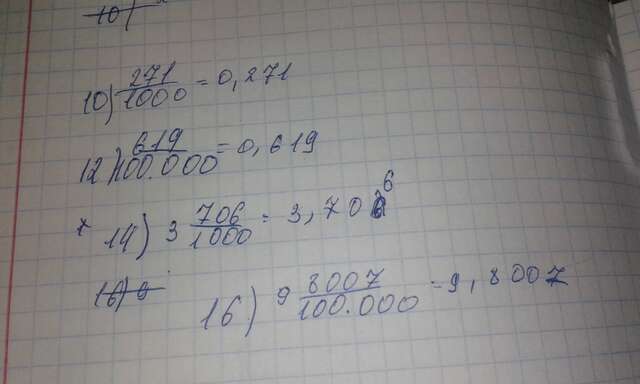 10)
10) 271/1000 = 0,271
12) 619/100.000 = 0,619
* 14) 3 706/1000 = 3,706
16) 9
16) 9 8007/100.000 = 9,8007